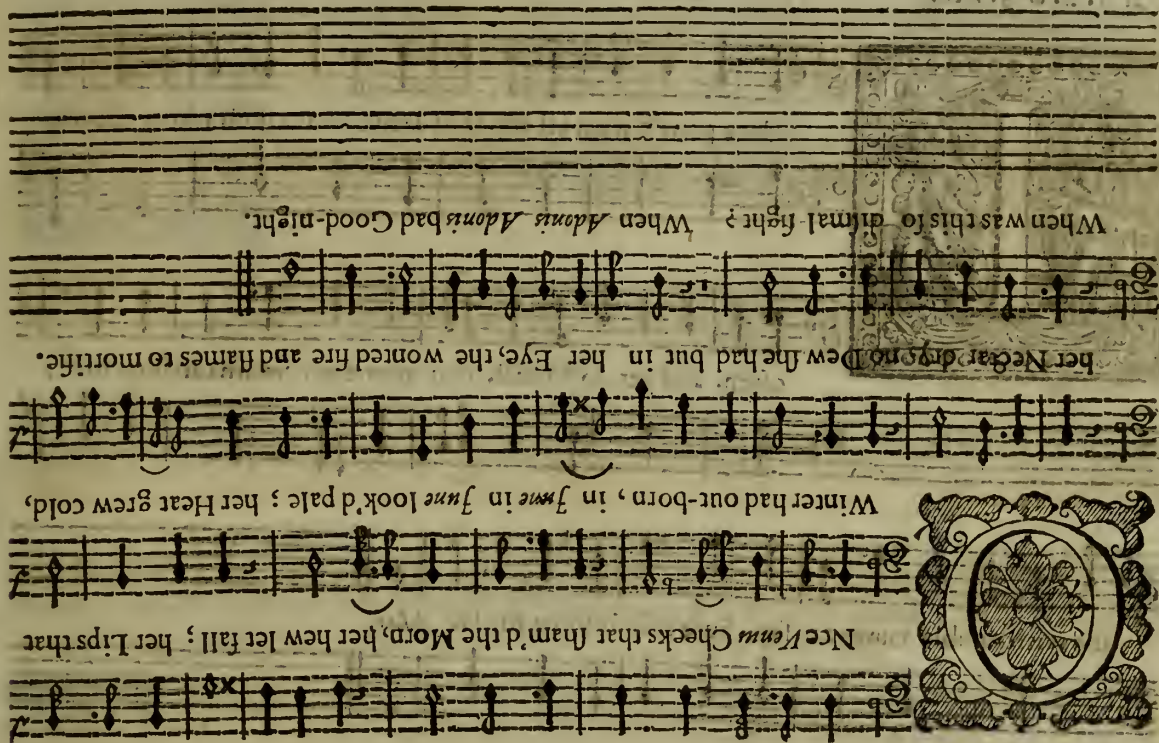 ONce Venus Cheeks that ſham'd the Morn, her hew her let fall; her Lips that
Winter had out-born, in June in June look'd pale; her Heat grew cold,
her Nectar dry; no Dew ſhe had but in her Eye, the wonted fire and flames to mortifie.
When was this ſo diſmal ſight? When Adonis Adonis bad Good-night.